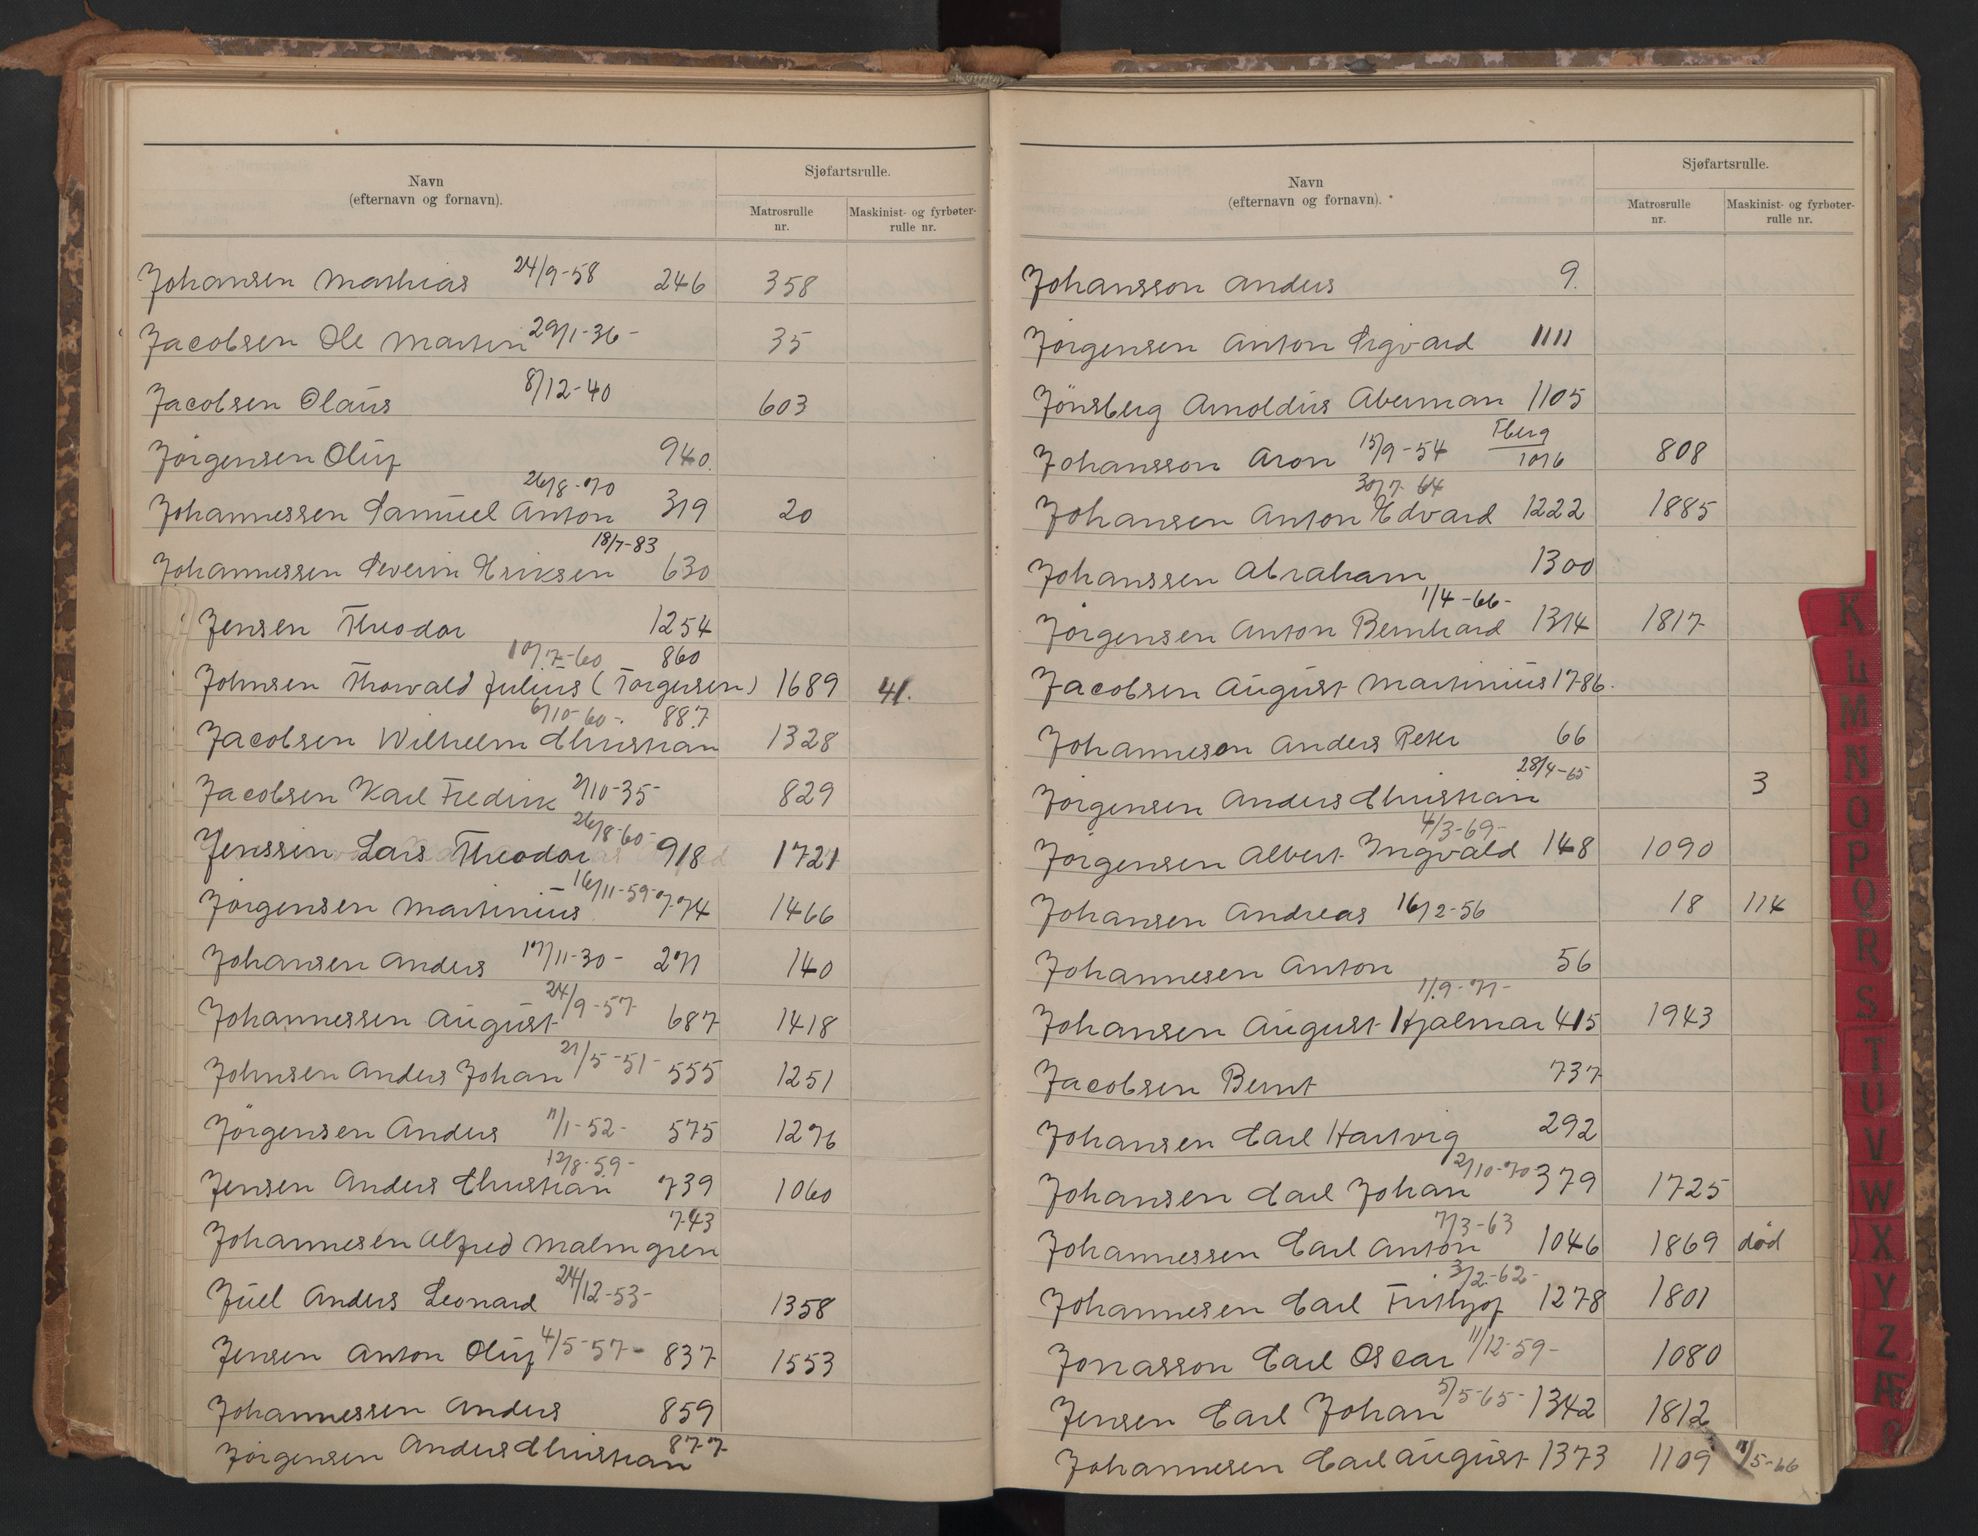 Navn
(efternavn og fornavn).
Sjøfartsrulle.
Matrosrulle nr.
Maskinist- og fyrbøter-rulle nr.
Johansen Mathias 24/9-58 246 358
Jacobsen Ole Martin 29/1-36- 35
Jacobsen Olaus 8/12-40 603
Jörgensen Oluf 940.
Johannessen Samuel Anton 26/8-70 319 20
Johannessen Severin Eriksen 18/7-83 630
Jensen Theodor 1254
Johnsen Thorvald Julius (Torgersen) 10/7-60 860 1689 41.
Jacobsen Wilhelm Christian 6/10-60- 887 1328
Jacobsen Karl Fredrik 2/10-35- 829
Jenssen Lars Theodor 26/8-60- 918 1721
Jörgensen Martinius 16/11-59- 774 1466
Johansen Anders 17/11-30- 271 140
Johannessen August 24/9-57- 687 1418
Johnsen Anders Johan 21/5-51- 555 1251
Jörgensen Anders 11/1-52- 575 1276
Jensen Anders Christian 12/8-59- 739 1060
Johannesen Alfred Malmgren 743
Juel Anders Leonard 24/12-53- 1358
Jensen Anton Oluf 4/5-57- 837 1553
Johannessen Anders 859
Jörgensen Anders Christian 877
Navn
(efternavn og fornavn).
Sjøfartsrulle.
Matrosrulle nr.
Maskinist- og fyrbøter-rulle nr.
Johansson Anders 9.
Jörgensen Anton Sigvard 1111
Jönsberg Arnoldus Aberman 1105
Johansson Aron 15/9-54 Tberg 1076 808
Johansen Anton Edvard 30/7-64 1222 1885
Johanssen Abraham 1300
Jörgensen Anton Bernhard 1/4-66- 1314 1817
Jacobsen August Martinius 1786.
Johanneson Anders Peter 66
Jörgensen Anders Christian 28/4-65 3
Jörgensen Albert Ingvald 4/3-69- 148 1090
Johansen Andreas 16/2-56 18 114
Johannesen Anton 56
Johansen August Hjalmar 1/9-71- 415 1943
Jacobsen Bernt 737
Johansen Carl Hartvig 292
Johansen Carl Johan 2/10-70 379 1725
Johannessen Carl Anton 7/3-63 1046 1869 død
Johannesen Carl Frithjof 3/2-62- 1278 1801
Jonasson Carl Oscar 11/12-59- 1080
Jensen Carl Johan 5/5-65- 1342 1812
Johannesen Carl August 1373 1109 /5-66
K
L
M
N
O
P
Q
R
S
T
U
V
W
X
Y
Z
Æ
Ø